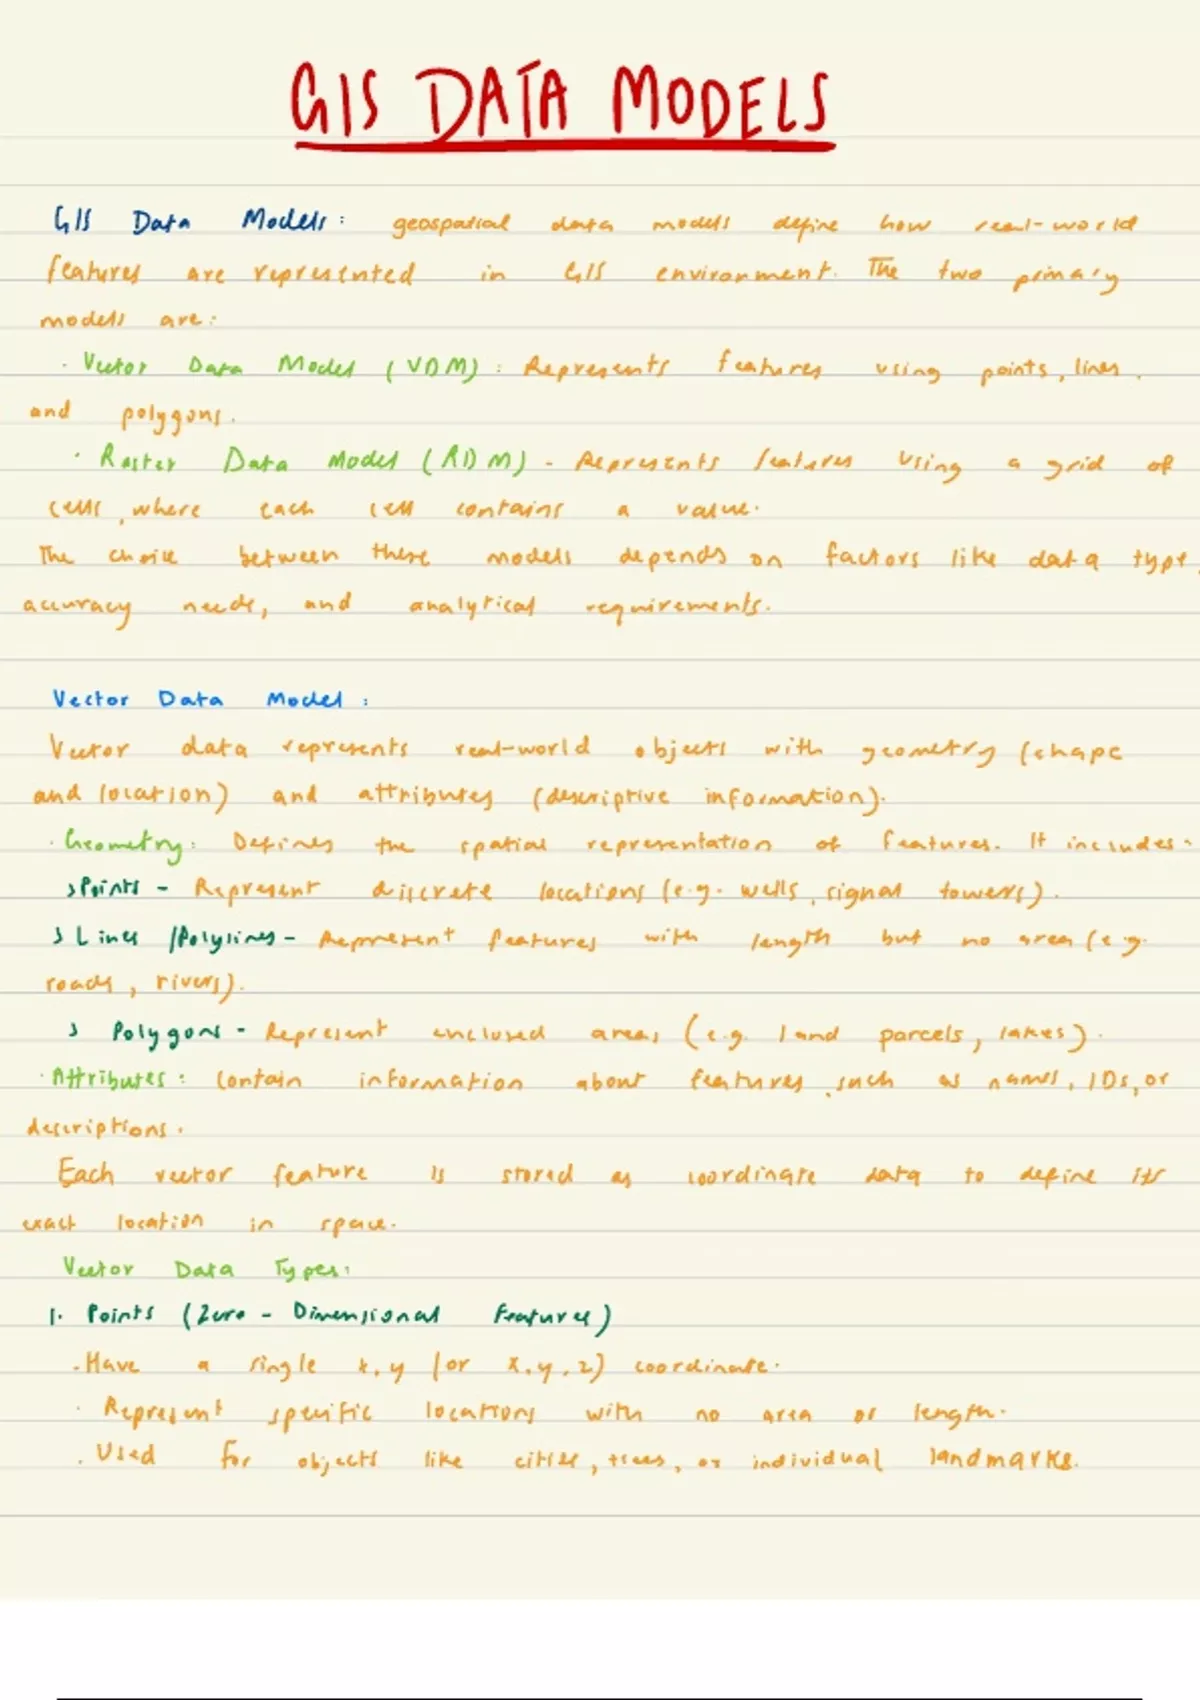 GIS DATA MODELS
GIS Data Models: geospatial data models define how real-world
features are represented in GIS environment. The two primary
models are:
· Vector Data Model (VDM): Represents features using points, lines,
and polygons.
· Raster Data Model (RDM) - Represents features using a grid of
cells, where each cell contains a value.
The choice between these models depends on factors like data type,
accuracy needs, and analytical requirements.
Vector Data Model:
Vector data represents real-world objects with geometry (shape
and location) and attributes (descriptive information).
· Geometry: Defines the spatial representation of features. It includes:
> Points - Represent discrete locations (e.g. wells, signal towers).
> Lines /Polylines - Represent features with length but no area (e.g.
roads, rivers).
> Polygons - Represent enclosed areas (e.g. land parcels, lakes).
· Attributes: Contain information about features, such as names, IDs, or
descriptions.
Each vector feature is stored as coordinate data to define its
exact location in space.
Vector Data Types:
1. Points (Zero-Dimensional Features)
· Have a single x, y (or x, y, z) coordinate.
· Represent specific locations with no area or length.
· Used for objects like cities, trees, or individual landmarks.